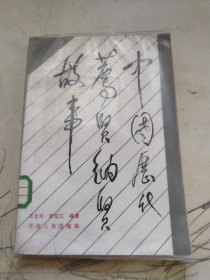 中国历代
荐贤纳贤
故事
编著
河南人民出版社